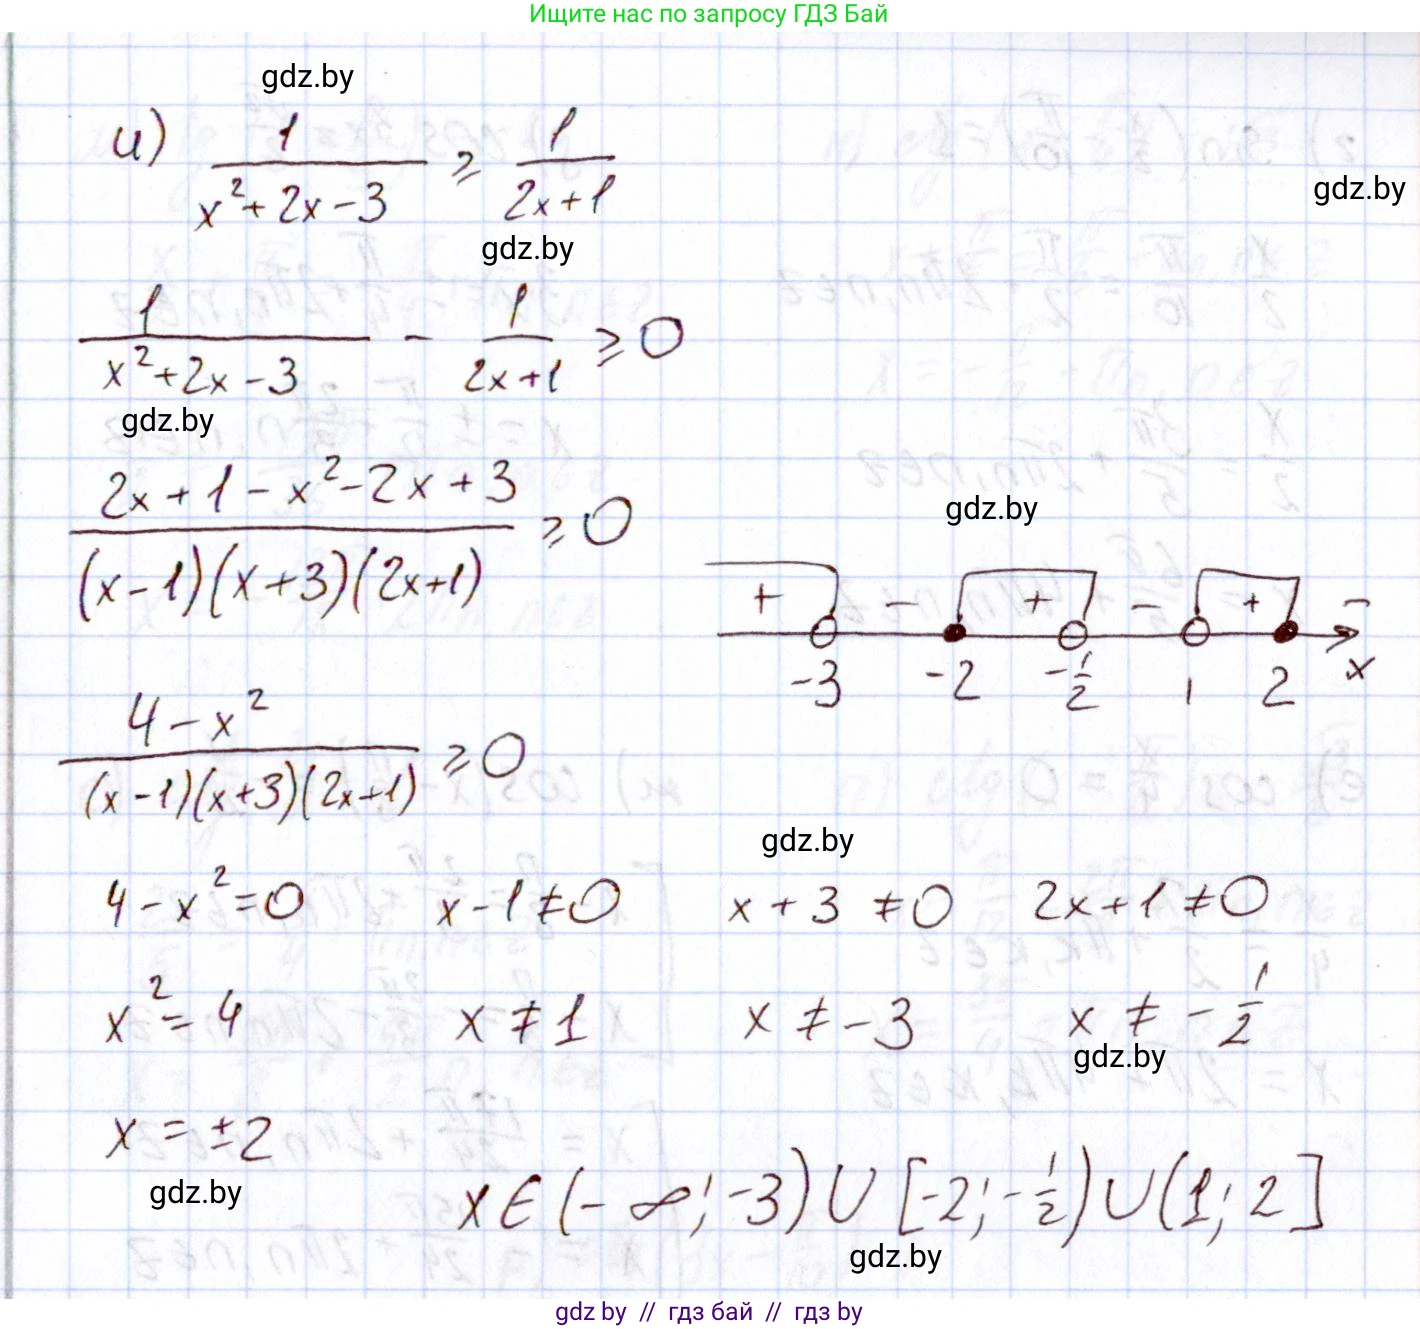 Ищите нас по запросу ГДЗ Бай
gdz.by
и) 1/(x²+2x-3) ≥ 1/(2x+1)
gdz.by
gdz.by
1/(x²+2x-3) - 1/(2x+1) ≥ 0
gdz.by
(2x+1-x²-2x+3)/((x-1)(x+3)(2x+1)) ≥ 0
gdz.by
+ - + - + -
-3 -2 -1/2 1 2 x
(4-x²)/((x-1)(x+3)(2x+1)) ≥ 0
gdz.by
4-x²=0 x-1≠0 x+3≠0 2x+1≠0
x²=4 x≠1 x≠-3 x≠-1/2
gdz.by
x=±2
gdz.by
x∈(-∞;-3)∪[-2;-1/2)∪(1;2]
gdz.by
gdz.by // гдз бай // гдз by